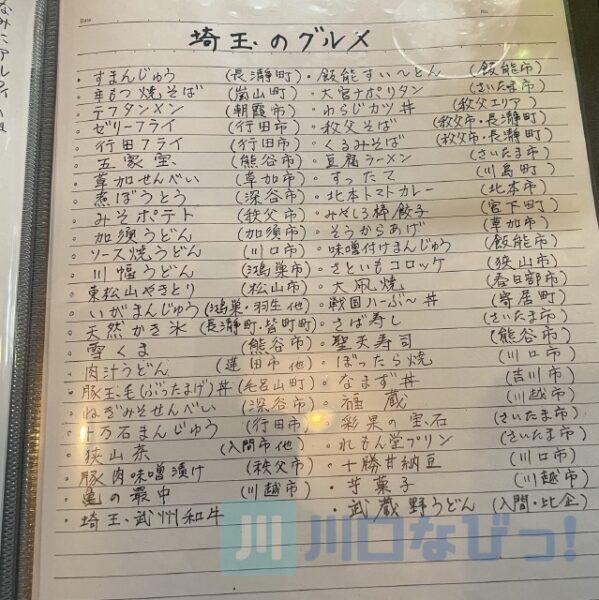 なみにアルディ
Date
No.
埼玉のグルメ
・すまんじゅう (長瀞町)・飯能すい〜とん (飯能市)
・辛もつ焼そば (嵐山町)・大宮ナポリタン (さいたま市)
・テフタンメン (朝霞市)・わらじカツ丼 (秩父エリア)
・ゼリーフライ (行田市)・秩父そば (秩父市・長瀞町)
・行田フライ (行田市)・くるみそば (秩父市・長瀞町)
・五家宝 (熊谷市)・豆腐ラーメン (さいたま市)
・草加せんべい (草加市)・すったて (川島町)
・煮ぼうとう (深谷市)・北本トマトカレー (北本市)
・みそポテト (秩父市)・みやしろ棒餃子 (宮下町)
・加須うどん (加須市)・そうからあげ (草加市)
・ソース焼うどん (川口市)・味噌付けまんじゅう (飯能市)
・川幅うどん (鴻巣市)・さといもコロッケ (狭山市)
・東松山やきとり (松山市)・大凧焼 (春日部市)
・いがまんじゅう (鴻巣・羽生他)・戦国ハーぶ〜丼 (寄居町)
・天然かき氷 (長瀞町・皆町町)・さば寿し (さいたま市)
・雪くま (熊谷市)・聖天寿司 (熊谷市)
・肉汁うどん (蓮田市他)・ぼったら焼 (川口市)
・豚玉毛(ぶったまげ)丼 (毛呂山町)・なまず丼 (吉川市)
・ねぎみそせんべい (深谷市)・福蔵 (川越市)
・十万石まんじゅう (行田市)・彩果の宝石 (さいたま市)
・狭山茶 (入間市他)・れもん堂プリン (さいたま市)
・豚肉味噌漬け (秩父市)・十勝甘納豆 (川口市)
・亀の最中 (川越市)・芋菓子 (川越市)
・埼玉武州和牛 ・武蔵野うどん (入間・比企)
川 川口なびっ!